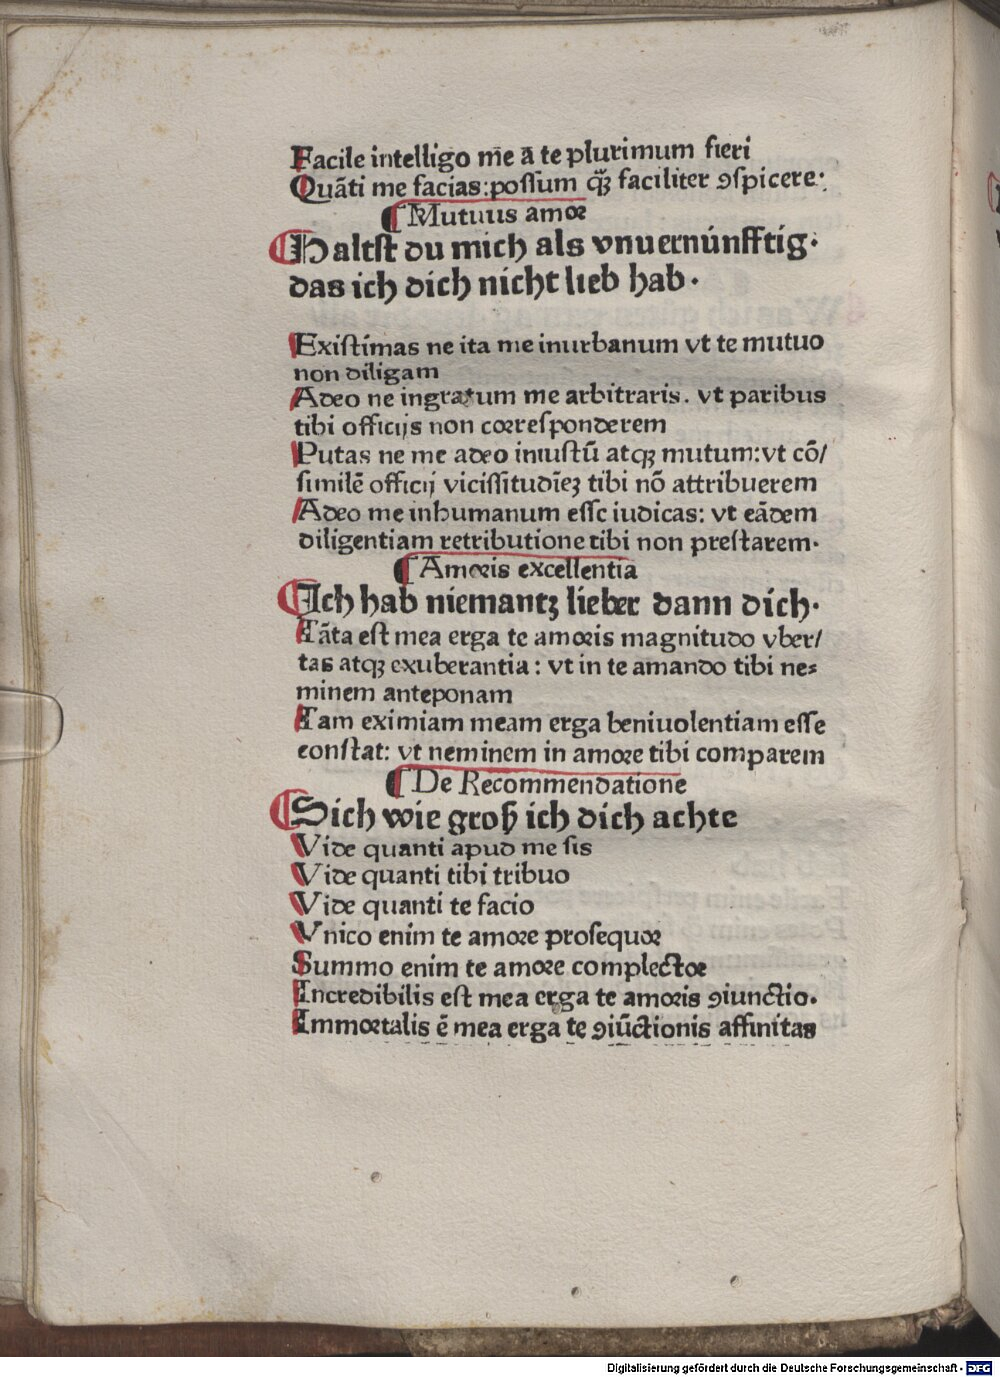 Facile intelligo me̅ a̅ te plurimum fieri
Qua̅ti me facias:possum qꝫ̃ faciliter ꝯspicere·
¶ Mutuus amoꝛ
¶ Haltst du mich als vnuernúnfftig·
das ich dich nicht lieb hab·
Existimas ne ita me inurbanum vt te mutuo
non diligam
Adeo ne ingratum me arbitraris. vt paribus
tibi officijs non coꝛresponderem
Putas ne me adeo iniustu̅ atqꝫ mutum:vt co̅/
simile̅ officij vicissitudi̅eꝫ tibi no̅ attribuerem
Adeo me inhumanum esse iudicas: vt ea̅dem
diligentiam retributione tibi non prestarem·
¶ Amoꝛis excellentia
¶ Ich hab niemantz lieber dann dich·
Ta̅ta est mea erga te amoꝛis magnitudo vber/
tas atqꝫ exuberantia: vt in te amando tibi ne⸗
minem anteponam
Tam eximiam meam erga beniuolentiam esse
constat: vt neminem in amoꝛe tibi comparem
¶ De Recommendatione
¶ Sich wie groß ich dich achte
Vide quanti apud me sis
Vide quanti tibi tribuo
Vide quanti te facio
Vnico enim te amoꝛe prosequoꝛ
Summo enim te amoꝛe complectoꝛ
Incredibilis est mea erga te amoꝛis ꝯiunctio·
Immoꝛtalis e̅ mea erga te ꝯiu̅ctionis affinitas
Digitalisierung gefördert durch die Deutsche Forschungsgemeinschaft - DFG